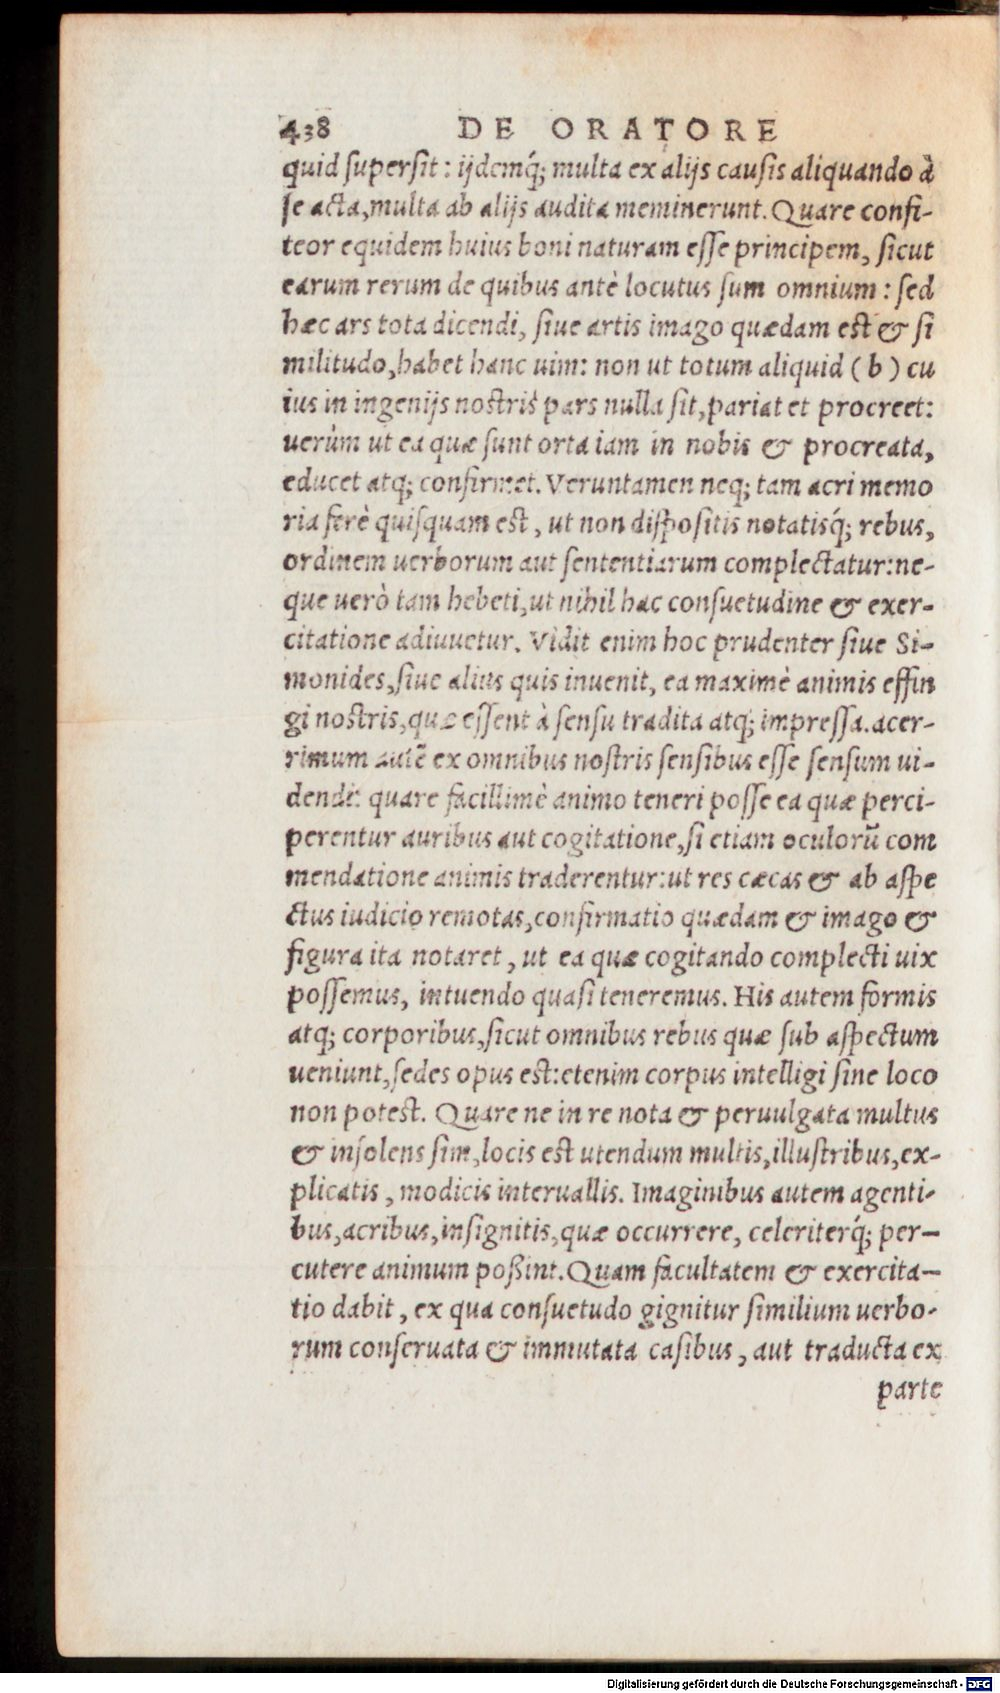 438 DE ORATORE
quid ſuperſit: ijdemq́; multa ex alijs cauſis aliquando à
ſe acta, multa ab alijs audita meminerunt. Quare confi-
teor equidem huius boni naturam eſſe principem, ſicut
earum rerum de quibus antè locutus ſum omnium: ſed
hæc ars tota dicendi, ſiue artis imago quædam eſt & ſi
militudo, habet hanc uim: non ut totum aliquid (b) cu
ius in ingenijs noſtris pars nulla ſit, pariat et procreet:
uerùm ut ea quæ ſunt orta iam in nobis & procreata,
educet atq; confirmet. Veruntamen neq; tam acri memo
ria ferè quiſquam eſt, ut non diſpoſitis notatisq́; rebus,
ordinem uerborum aut ſententiarum complectatur: ne-
que uerò tam hebeti, ut nihil hac conſuetudine & exer-
citatione adiuuetur. Vidit enim hoc prudenter ſiue Si-
monides, ſiue alius quis inuenit, ea maximè animis effin
gi noſtris, quæ eſſent à ſenſu tradita atq; impreſſa. acer-
rimum autē ex omnibus noſtris ſenſibus eſſe ſenſum ui-
dendi: quare facillimè animo teneri poſſe ea quæ perci-
perentur auribus aut cogitatione, ſi etiam oculorū com
mendatione animis traderentur: ut res cæcas & ab aſpe
ctus iudicio remotas, confirmatio quædam & imago &
figura ita notaret, ut ea quæ cogitando complecti uix
poſſemus, intuendo quaſi teneremus. His autem formis
atq; corporibus, ſicut omnibus rebus quæ ſub aſpectum
ueniunt, ſedes opus eſt: etenim corpus intelligi ſine loco
non poteſt. Quare ne in re nota & peruulgata multus
& inſolens ſim, locis eſt utendum multis, illuſtribus, ex-
plicatis, modicis interuallis. Imaginibus autem agenti-
bus, acribus, inſignitis, quæ occurrere, celeriterq́; per-
cutere animum poßint. Quam facultatem & exercita-
tio dabit, ex qua conſuetudo gignitur ſimilium uerbo-
rum conſeruata & immutata caſibus, aut traducta ex
parte
Digitalisierung gefördert durch die Deutsche Forschungsgemeinschaft - DFG